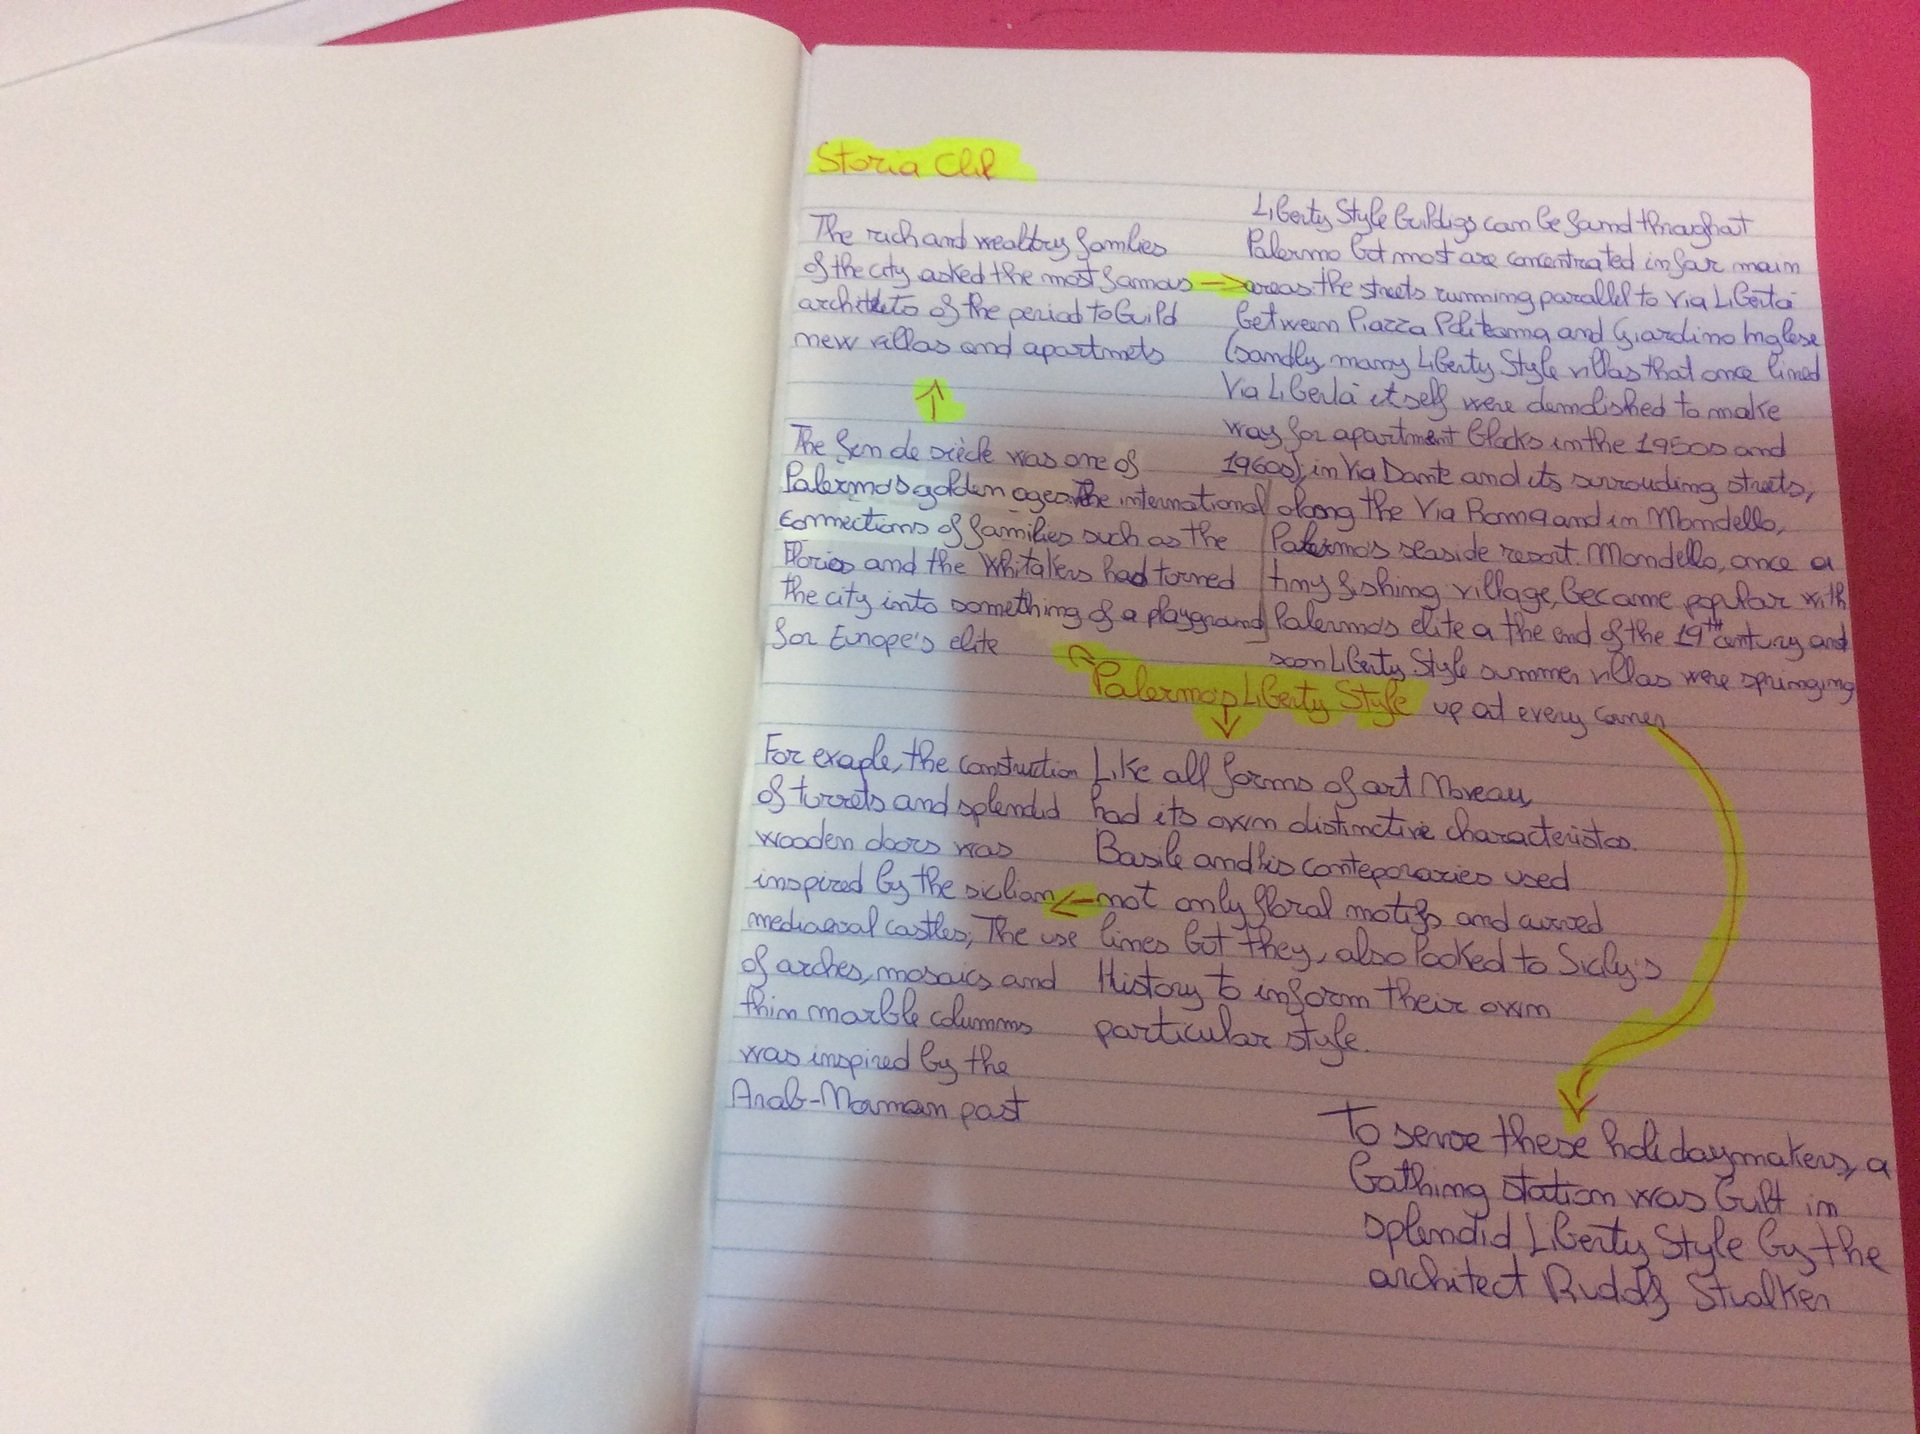 Storia Clil
The rich and wealthy families
of the city asked the most famous →
architects of the period to build
new villas and apartmets
↑
The fen de siècle was one of
Palermo's golden ages. The international
connections of families such as the
Florios and the Whitakers had torned
the city into something of a playground
for Europe's elite
Liberty Style buildigs can be found throughout
Palermo but most are concentrated in four main
areas: the streets running parallel to Via Libertà
between Piazza Politeama and Giardino Inglese
(sandly, many Liberty Style villas that once lined
Via Libertà itself were demolished to make
way for apartment blocks in the 1950s and
1960s); in Via Dante and its surrouding streets,
along the Via Roma and in Mondello,
Palermo's seaside resort. Mondello, once a
tiny fishing village, became popular with
Palermo's elite a the end of the 19th century and
soon Liberty Style summer villas were springing
up at every corner
Palermo's Liberty Style
↓
Like all forms of art Noveau,
had its own distinctive characteristcs.
Basile and his conteporaries used
← not only floral motifs and curved
lines but they, also looked to Sicily's
History to inform their own
particular style.
For exaple, the construction
of turrets and splendid
wooden doors was
inspired by the sicilian
mediaeval castles; The use
of arches, mosaics and
thin marble columns
was inspired by the
Arab-Norman past
To serve these holidaymakers, a
bathing station was built in
splendid Liberty Style by the
architect Rudolf Stualker